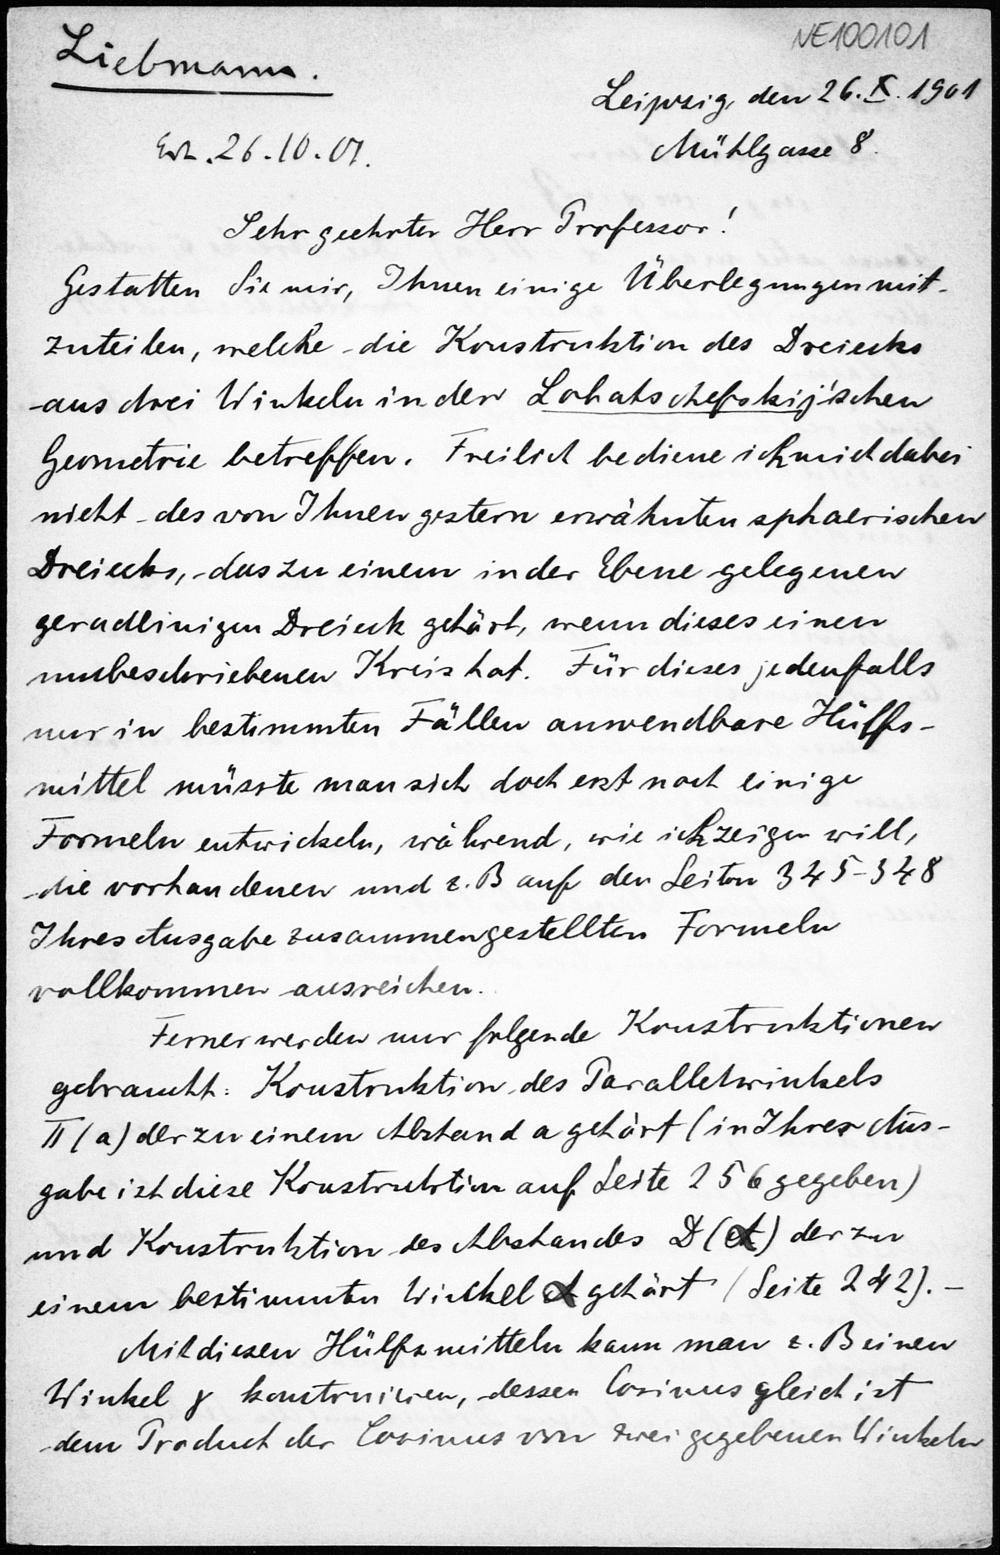 Liebmann.
NE100101
Leipzig, den 26. X. 1901
Erh. 26.10.01.
Mühlgasse 8.
Sehr geehrter Herr Professor!
Gestatten Sie mir, Ihnen einige Überlegungen mit-
zuteilen, welche die Konstruktion des Dreiecks
aus drei Winkeln in der Lobatschefskij'schen
Geometrie betreffen. Freilich bediene ich mich dabei
nicht des von Ihnen gestern erwähnten sphaerischen
Dreiecks, das zu einem in der Ebene gelegenen
geradlinigen Dreieck gehört, wenn dieses einen
umbeschriebenen Kreis hat. Für dieses jedenfalls
nur in bestimmten Fällen anwendbare Hülfs-
mittel müsste man sich doch erst noch einige
Formeln entwickeln, während, wie ich zeigen will,
die vorhandenen und z. B auf den Seiten 345-348
Ihres Ausgabe zusammengestellten Formeln
vollkommen ausreichen.
Ferner werden nur folgende Konstruktionen
gebraucht: Konstruktion des Parallelwinkels
Π(a) der zu einem Abstand a gehört (in Ihrer Aus-
gabe ist diese Konstruktion auf Seite 256 gegeben)
und Konstruktion des Abstandes D(α) der zu
einem bestimmten Winkel α gehört (Seite 242). -
Mit diesen Hülfsmitteln kann man z. B einen
Winkel γ konstruiren, dessen Cosinus gleich ist
dem Product der Cosinus von zwei gegebenen Winkeln